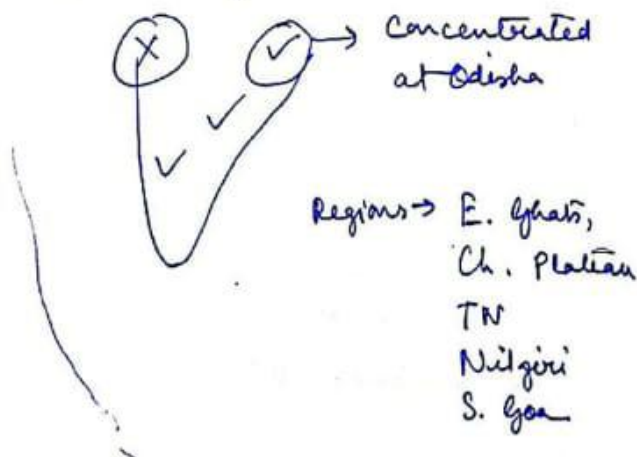 X ✓ → Concentrated
at Odisha
✓
✓
Regions → E. Ghats,
Ch. Plateau
TN
Nilgiri
S. Goa